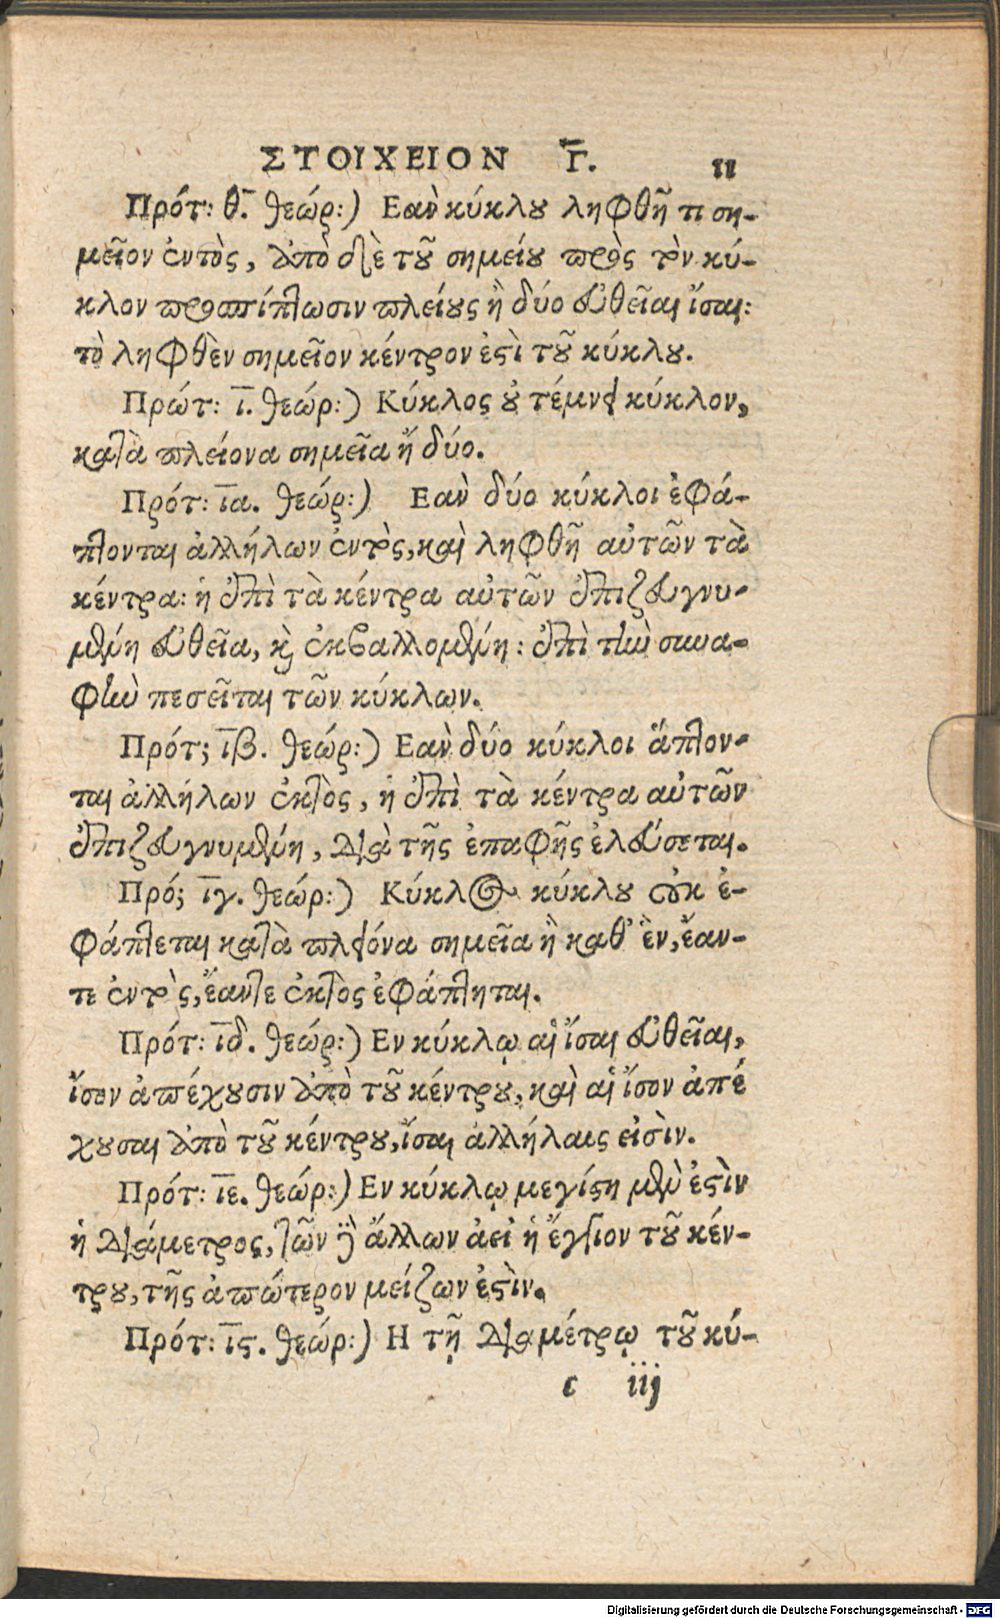 ΣΤΟΙΧΕΙΟΝ Γ̅. 11
Πρότ: θ̅. θεώρ:) Εαν κύκλου ληφθῆ τι ση-
μεῖον ἐντὸς, ἀπὸ δὲ τοῦ σημείου πρὸς τὸν κύ-
κλον προσπίπτωσιν πλείους ἢ δύο εὐθεῖαι ἴσαι:
τὸ ληφθὲν σημεῖον κέντρον ἐστὶ τοῦ κύκλου.
Πρώτ: ι̅. θεώρ:) Κύκλος οὐ τέμνει κύκλον,
κατὰ πλείονα σημεῖα ἤ δύο.
Πρότ: ι̅α. θεώρ:) Εαν δύο κύκλοι ἐφά-
πτονται ἀλλήλων ἐντὸς, καὶ ληφθῆ αὐτῶν τὰ
κέντρα: ἡ ἐπὶ τὰ κέντρα αὐτῶν ἐπιζευγνυ-
μένη εὐθεῖα, καὶ ἐκβαλλομένη: ἐπὶ τὴν συνα-
φὴν πεσεῖται τῶν κύκλων.
Πρότ; ι̅β. θεώρ:) Εαν δύο κύκλοι ἅπτον-
ται ἀλλήλων ἐκτὸς, ἡ ἐπὶ τὰ κέντρα αὐτῶν
ἐπιζευγνυμένη, διὰ τῆς ἐπαφῆς ἐλεύσεται.
Πρό; ι̅γ. θεώρ:) Κύκλος κύκλου οὐκ ἐ-
φάπτεται κατὰ πλειόνα σημεῖα ἢ καθ' ἓν, ἔαν-
τε ἐντὸς, ἔαντε ἐκτὸς ἐφάπτηται.
Πρότ: ι̅δ. θεώρ:) Εν κύκλῳ αἱ ἴσαι εὐθεῖαι,
ἴσον ἀπέχουσιν ἀπὸ τοῦ κέντρου, καὶ αἱ ἴσον ἀπέ
χουσαι ἀπὸ τοῦ κέντρου, ἴσαι ἀλλήλαις εἰσὶν.
Πρότ: ι̅ε. θεώρ:) Εν κύκλῳ μεγίστη μὲν ἐστὶν
ἡ διάμετρος, τῶν δὲ ἄλλων ἀεὶ ἡ ἔγγιον τοῦ κέν-
τρου, τῆς ἀπώτερον μείζων ἐστὶν.
Πρότ: ι̅ϛ. θεώρ:) Η τῇ διαμέτρῳ τοῦ κύ-
c iij
Digitalisierung gefördert durch die Deutsche Forschungsgemeinschaft - DFG